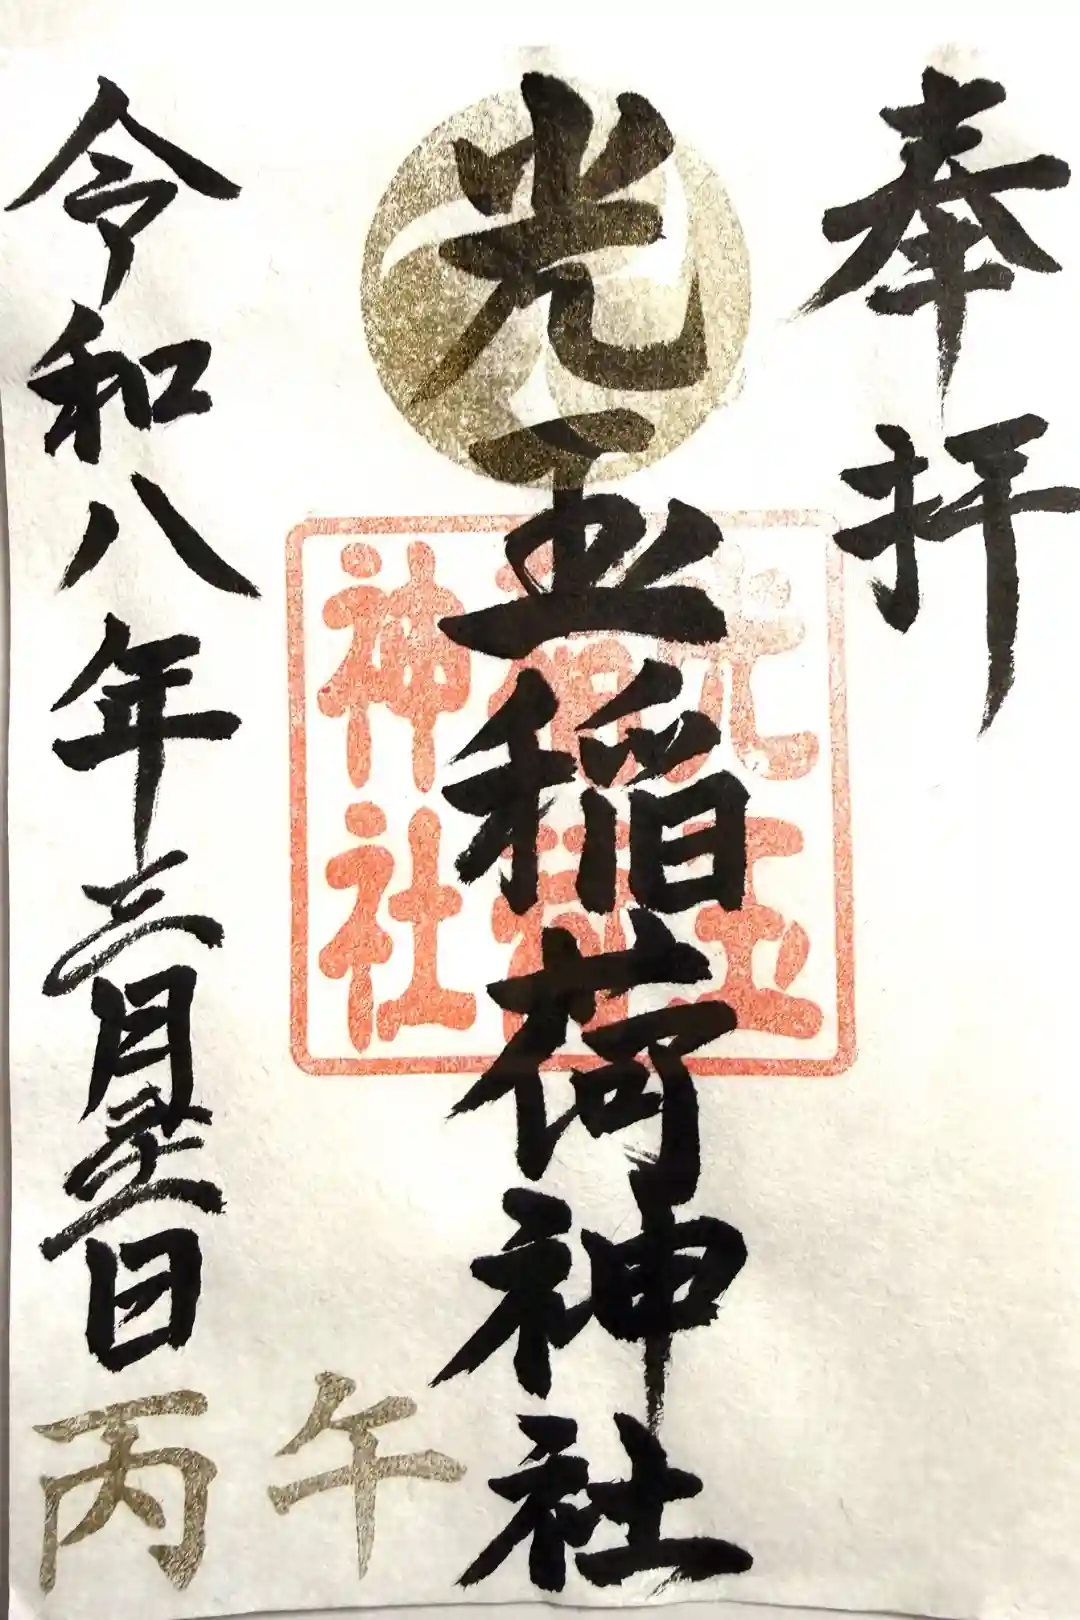 奉拝
光玉稲荷神社
光玉
稲荷
神社
令和八年三月 日
丙午